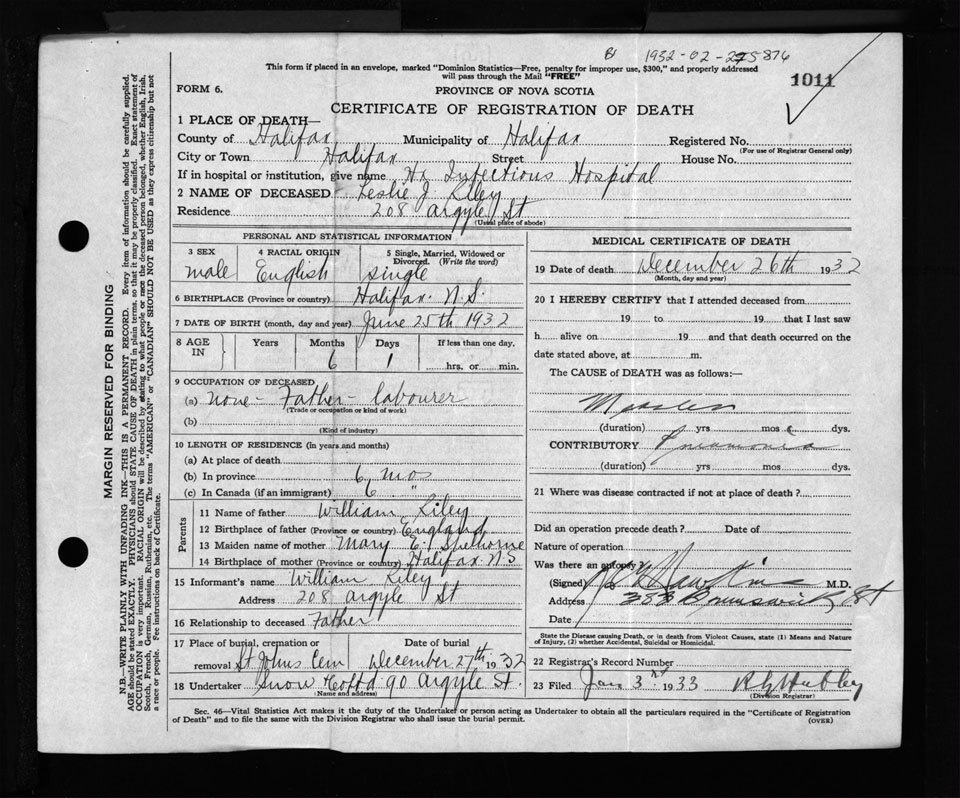 B 1932-02-275876
This form if placed in an envelope, marked "Dominion Statistics—Free, penalty for improper use, $300," and properly addressed
will pass through the Mail "FREE"
1011
FORM 6.
PROVINCE OF NOVA SCOTIA
CERTIFICATE OF REGISTRATION OF DEATH
1 PLACE OF DEATH—
County of Halifax Municipality of Halifax Registered No.
(For use of Registrar General only)
City or Town Halifax Street House No.
If in hospital or institution, give name Hx Infectious Hospital
2 NAME OF DECEASED Leslie J. Riley
Residence 208 Argyle St
(Usual place of abode)
PERSONAL AND STATISTICAL INFORMATION
3 SEX 4 RACIAL ORIGIN 5 Single, Married, Widowed or
Divorced. (Write the word)
male English single
6 BIRTHPLACE (Province or country) Halifax. N.S.
7 DATE OF BIRTH (month, day and year) June 25th 1932
8 AGE IN Years Months Days If less than one day,
6 1 hrs. or min.
9 OCCUPATION OF DECEASED
(a) none - Father - labourer
(Trade or occupation or kind of work)
(b)
(Kind of industry)
10 LENGTH OF RESIDENCE (in years and months)
(a) At place of death
(b) In province 6 mos
(c) In Canada (if an immigrant) 6 "
Parents
11 Name of father William Riley
12 Birthplace of father (Province or country) England
13 Maiden name of mother Mary E.
14 Birthplace of mother (Province or country) Halifax NS
15 Informant's name William Riley
Address 208 Argyle St
16 Relationship to deceased Father
17 Place of burial, cremation or Date of burial
removal St Johns Cem December 27th 1932
18 Undertaker Snow & Co Ltd 90 Argyle St.
(Name and address)
MEDICAL CERTIFICATE OF DEATH
19 Date of death December 26th 1932
(Month, day and year)
20 I HEREBY CERTIFY that I attended deceased from
19 to 19 that I last saw
h alive on 19 and that death occurred on the
date stated above, at m.
The CAUSE of DEATH was as follows:—
Measles
(duration) yrs mos dys.
CONTRIBUTORY Pneumonia
(duration) yrs mos dys.
21 Where was disease contracted if not at place of death?
Did an operation precede death? Date of
Nature of operation
Was there an autopsy?
(Signed) M.D.
Address 353 Brunswick St
Date
State the Disease causing Death, or in death from Violent Causes, state (1) Means and Nature
of Injury, (2) whether Accidental, Suicidal or Homicidal.
22 Registrar's Record Number
23 Filed Jan 3rd 1933 R G Hubley
Division Registrar)
Sec. 46—Vital Statistics Act makes it the duty of the Undertaker or person acting as Undertaker to obtain all the particulars required in the "Certificate of Registration
of Death" and to file the same with the Division Registrar who shall issue the burial permit.
(OVER)
MARGIN RESERVED FOR BINDING
N.B.—WRITE PLAINLY WITH UNFADING INK—THIS IS A PERMANENT RECORD. Every item of information should be carefully supplied.
AGE should be stated EXACTLY. PHYSICIANS should STATE CAUSE OF DEATH in plain terms, so that it may be properly classified. Exact statement of
OCCUPATION is very important. RACIAL ORIGIN will be described by stating to what people or race the deceased person belonged, whether English, Irish,
Scotch, French, German, Russian, Ruthenian, etc. The terms "AMERICAN" or "CANADIAN" SHOULD NOT BE USED as they express citizenship but not
a race or people. Fee instructions on back of Certificate.